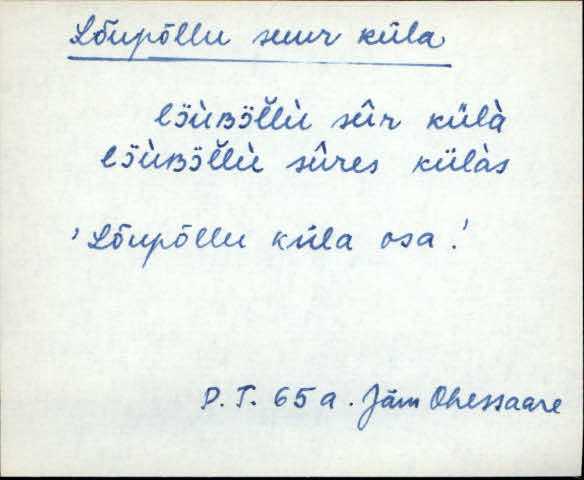 Lõupõllu suur küla
lɔ̈ùʙɔ̈l̆lù sûr külà
lɔ̈ùʙɔ̈l̆lù sûres külàs
'Lõupõllu küla osa.'
P. T. 65 a. Jäm Ohessaare